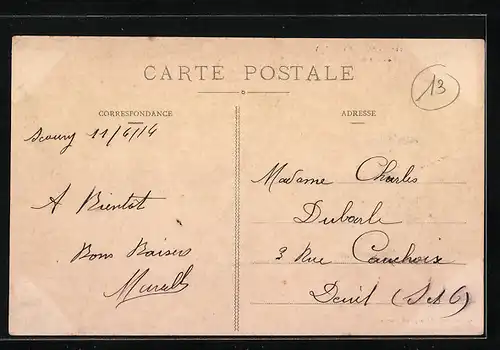 CARTE POSTALE
13
CORRESPONDANCE
11/6/14
A Bientot
Bons Baisers
ADRESSE
Madame Charles
Dubarle
3 Rue Cauchoix
Deuil (S et O)